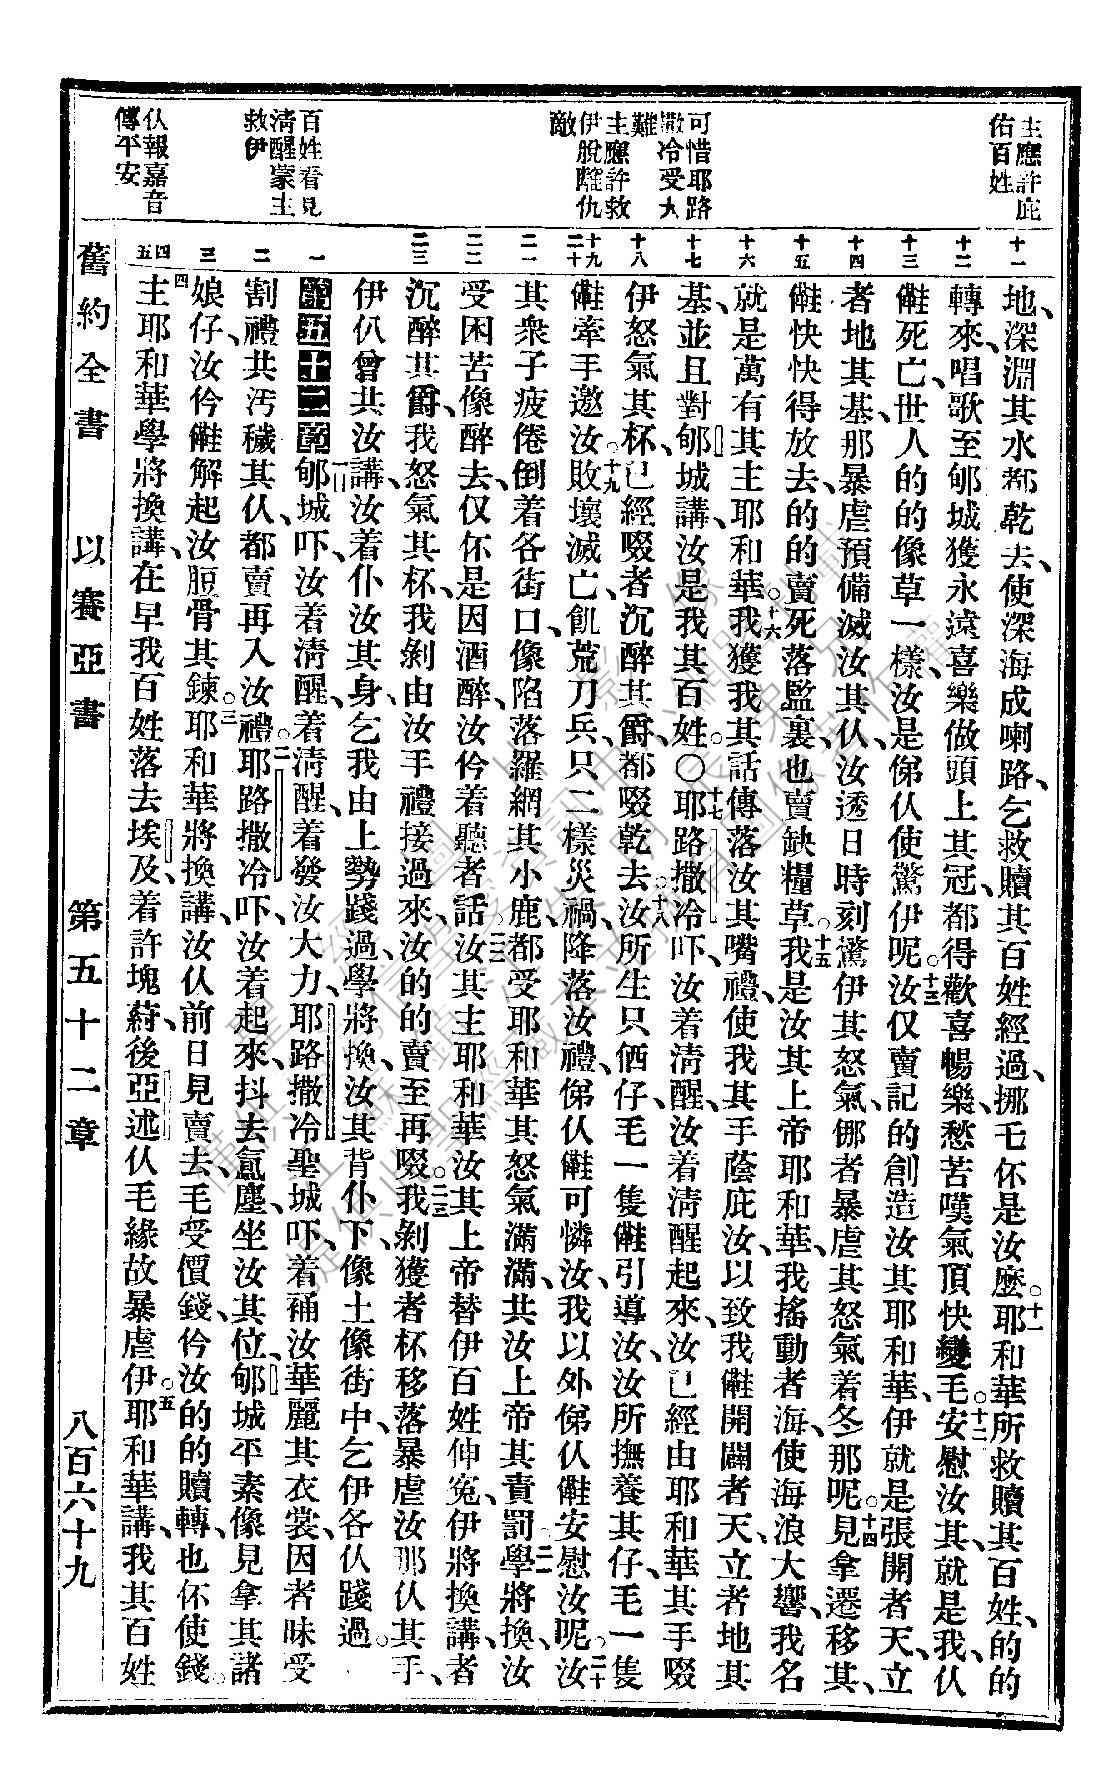 主應許庇
佑百姓
可惜耶路
撒冷受大
難
主應許救
伊脫離仇
敵
百姓看見
清醒蒙主
救伊
仈報嘉音
傳平安
十一
十二
十三
十四
十五
十六
十七
十八
十九
二十
二一
二二
二三
一
二
三
四
五
地、深淵其水都乾去、使深海成喇路、乞救贖其百姓經過、挪乇伓是汝麽。十一耶和華所救贖其百姓、的的
轉來、唱歌至郇城獲永遠喜樂做頭上其冠、都得歡喜暢樂、愁苦嘆氣頂快變毛。十二安慰汝其、就是我、仈
儺死亡、世人的的像草一樣、汝是俤仈使驚伊呢。十三汝仅賣記的創造汝其耶和華、伊就是張開者天、立
者地其基、那暴虐預備滅汝其仈、汝透日時刻驚伊其怒氣、㑚者暴虐其怒氣着冬那呢。十四見拿遷移其、
快快得放去、的的賣死落監裏、也賣缺糧草。十五我是汝其上帝耶和華、我搖動者海、使海浪大響、我名
就是萬有其主耶和華。十六我獲我其話傳落汝其嘴禮、使我其手蔭庇汝、以致我開闢者天、立者地其
基、並且對郇城講、汝是我其百姓。〇十七耶路撒冷吓、汝着清醒、汝着清醒起來、汝已經由耶和華其手啜
伊怒氣其杯、已經啜者沉醉其爵、都啜乾去。十八汝所生只㑚仔、毛一隻引導汝、汝所撫養其仔、毛一隻
牽手邀汝。十九敗壞滅亡、飢荒刀兵、只二樣災禍、降落汝禮、俤仈可憐汝、我以外俤仈安慰汝呢。二十汝
其衆子疲倦倒着各街口、像陷落羅網其小鹿、都受耶和華其怒氣滿滿、共汝上帝其責罰。二一學將換、汝
受困苦像醉去、仅伓是因酒醉、汝仱着聽者話。二二汝其主耶和華、汝其上帝替伊百姓伸冤、伊將換講、者
沉醉其爵、我怒氣其杯、我剝由汝手禮接過來、汝的的賣至再啜。二三我剝獲者杯移落暴虐汝那仈其手、
伊仈曾共汝講、汝着仆汝其身、乞我由上勢踐過、學將換、汝其背仆下、像土像街中、乞伊各仈踐過。
第五十二章一郇城吓、汝着清醒、着清醒、着發汝大力、耶路撒冷聖城吓、着補汝華麗其衣裳、因者昧受
割禮共汚穢其仈、都賣再入汝禮。二耶路撒冷吓、汝着起來、抖去塵、坐汝其位、郇城平素像見拿其諸
娘仔、汝仱解起汝脰骨其鍊。三耶和華將換講、汝仈前日見賣去、毛受價錢、仱汝的的贖轉、也伓使錢。
四主耶和華學將換講、在早我百姓落去埃及、着許塊蒔、後亞述仈毛緣故暴虐伊。五耶和華講、我其百姓
舊約全書　以賽亞書　第五十二章　八百六十九